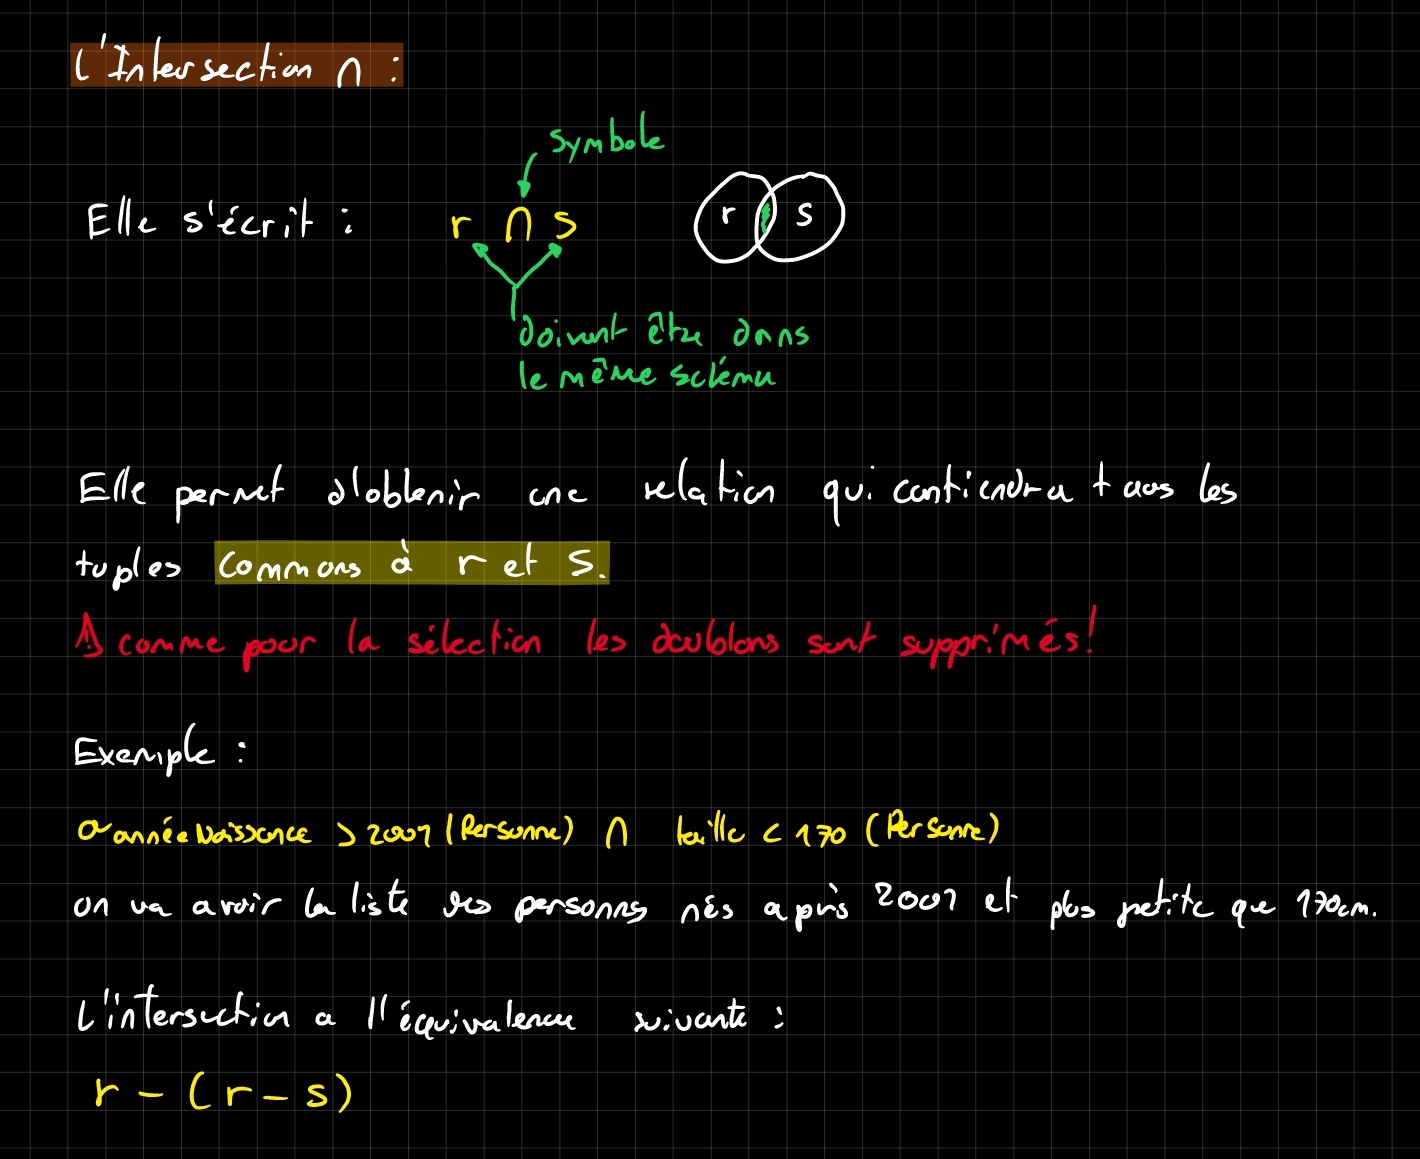 L'Intersection ∩ :
symbole
Elle s'écrit : r ∩ s
r s
doivent être dans
le même schéma
Elle permet d'obtenir une relation qui contiendra tous les
tuples communs à r et s.
⚠ comme pour la sélection les doublons sont supprimés!
Exemple :
σ annéeNaissance > 2001 (Personne) ∩ taille < 170 (Personne)
on va avoir la liste des personnes nés après 2001 et plus petite que 170cm.
L'intersection a l'équivalence suivante :
r - (r - s)